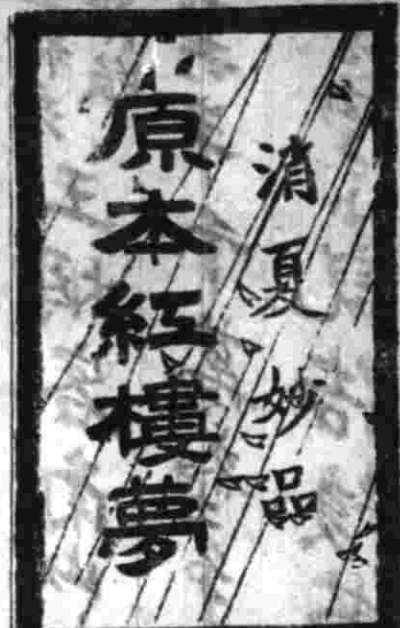 消夏妙品
原本紅樓夢